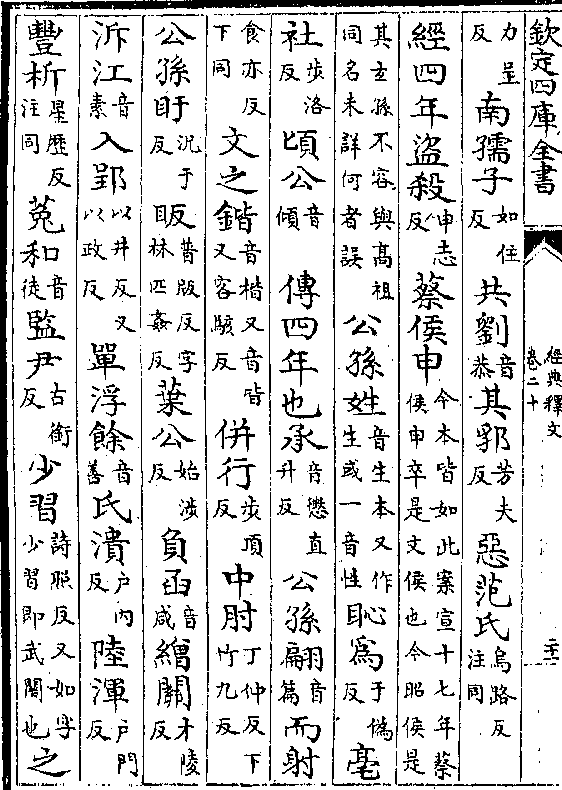 欽定四庫全書
經典釋文
卷二十
力呈反 南孺子如住反 共劉音恭 其郛芳夫反 惡范氏烏路反注同
經四年盜殺申志反 蔡侯申今本皆如此案宣十七年蔡侯申卒是文侯也今昭侯是
其玄孫不容與高祖同名未詳何者誤 公孫姓音生本又作生或一音性 恥為于偽反 亳
社步洛反 頃公音傾 傳四年也承音懲直升反 公孫翩音篇 而射
食亦反下同 文之鍇音楷又音皆又客駭反 併行步頂反 中肘丁仲反下竹九反
公孫盱況于反 眅普版反字林匹姦反 葉公始涉反 負函音咸 繒關才陵反
泝江音素 入郢以井反又以政反 單浮餘音善 氏潰戶內反 陸渾戶門反
豐析星歷反注同 菟和音徒 監尹古銜反 少習詩照反又如字少習即武關也 之